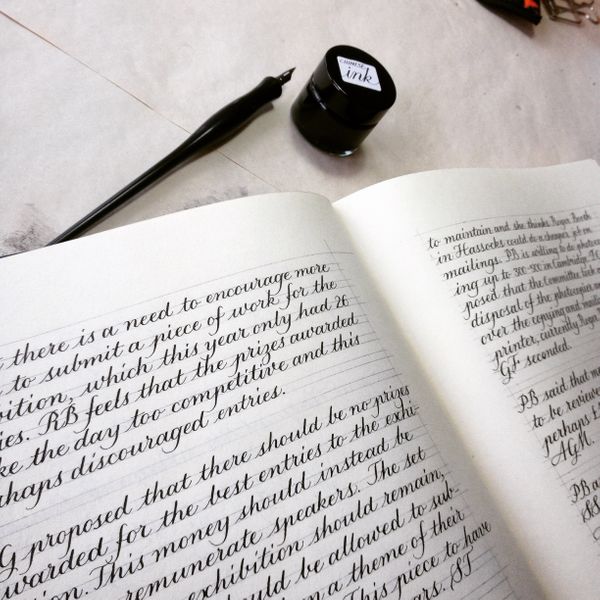 CHINESE
ink
there is a need to encourage more
to submit a piece of work for the
ition, which this year only had 26
ies. RB feels that the prizes awarded
ke the day too competitive and this
rhaps discouraged entries.
G proposed that there should be no prizes
warded for the best entries to the exhi-
on. This money should instead be
remunerate speakers. The set
exhibition should remain,
ould be allowed to sub-
n a theme of their
This piece to have
ars. ST
to maintain and she thinks Roger
in Hassocks could do a cheaper job on
mailings. PB is willing to do photocop
ing up to 300-500 in Cambridge.
posed that the Committee
disposal of the photocopier
over the copying and
printer, currently Roger
GF seconded.
PB said that
to be review
perhaps
AGM.
PB
SS